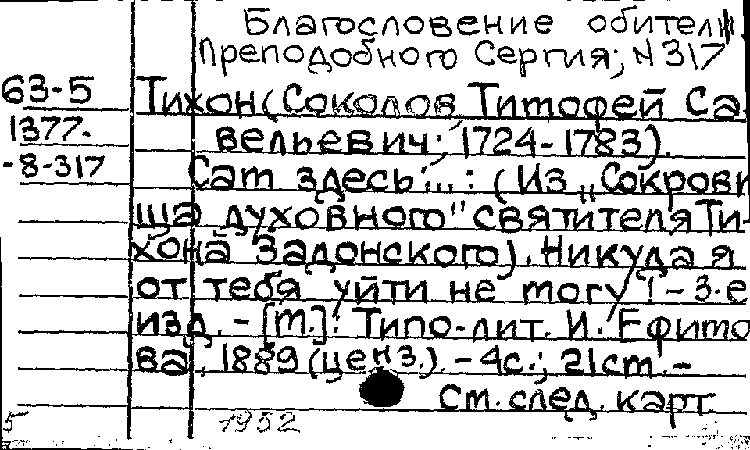 Благословение обители
Преподобного Сергия; N 317
63-5
1377.
-8-317
Тихон (Соколов Тимофей Са-
вельевич; 1724-1783).
Сам здесь:...: (Из „Сокрови-
ща духовного" святителя Ти-
хона Задонского). Никуда я
от тебя уйти не могу! - 3-е
изд. - [М.]: Типо-лит. И. Ефимо-
ва, 1889 (ценз.). - 4с.; 21см. -
См. след. карт
5
1952